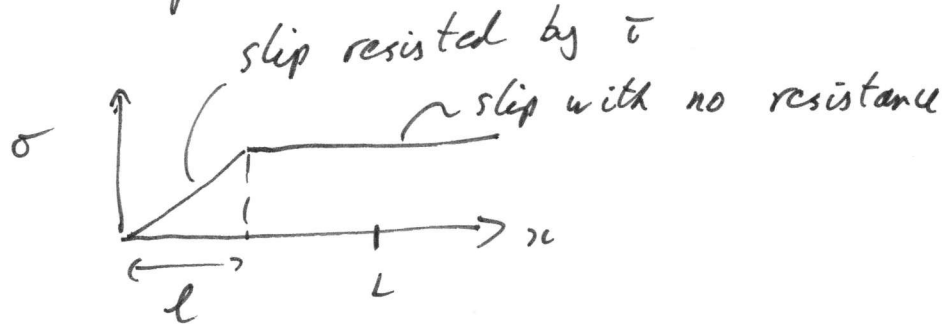 slip resisted by τ
slip with no resistance
σ
x
l
L